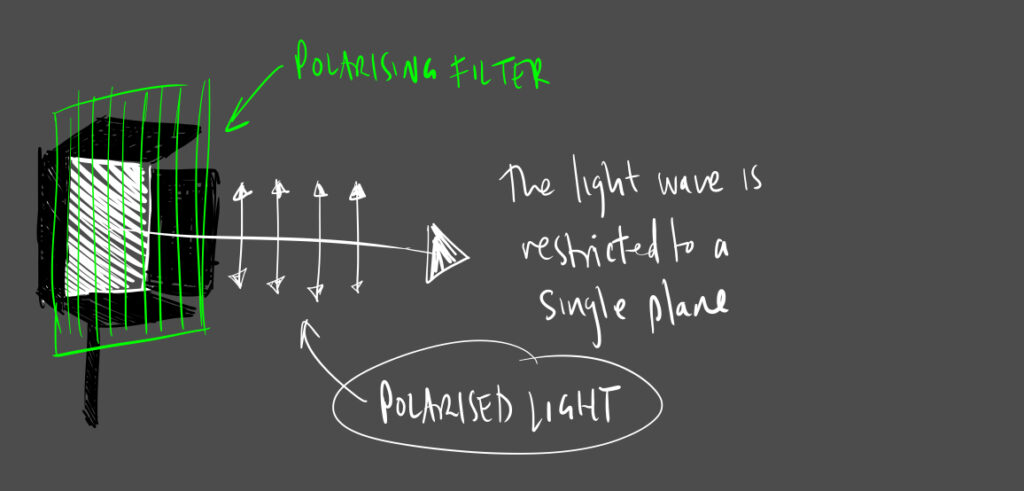 POLARISING FILTER
The light wave is
restricted to a
single plane
POLARISED LIGHT